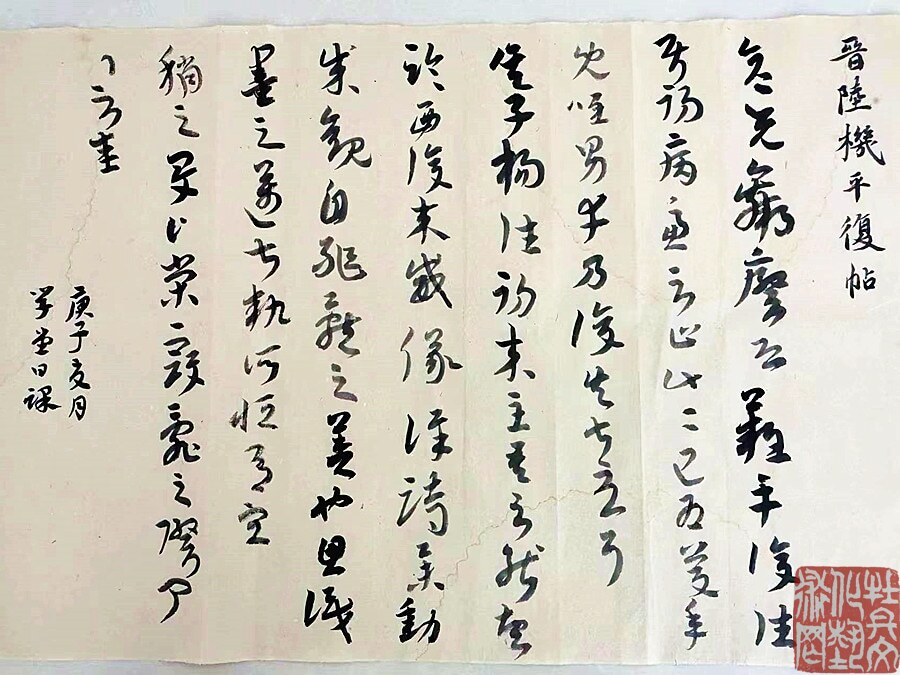 晉陸機平復帖
彦先羸瘵恐難平復往
屬初病慮不止此此已為慶承
使唯男幸為復失前憂耳
吳子楊往初來主吾不能盡
臨西復來威儀詳跱舉動
成觀自軀體之美也思識
量之邁前執所恒有宜
稱之夏伯榮寇亂之際聞
問不悉
庚子夏月
学堂日課